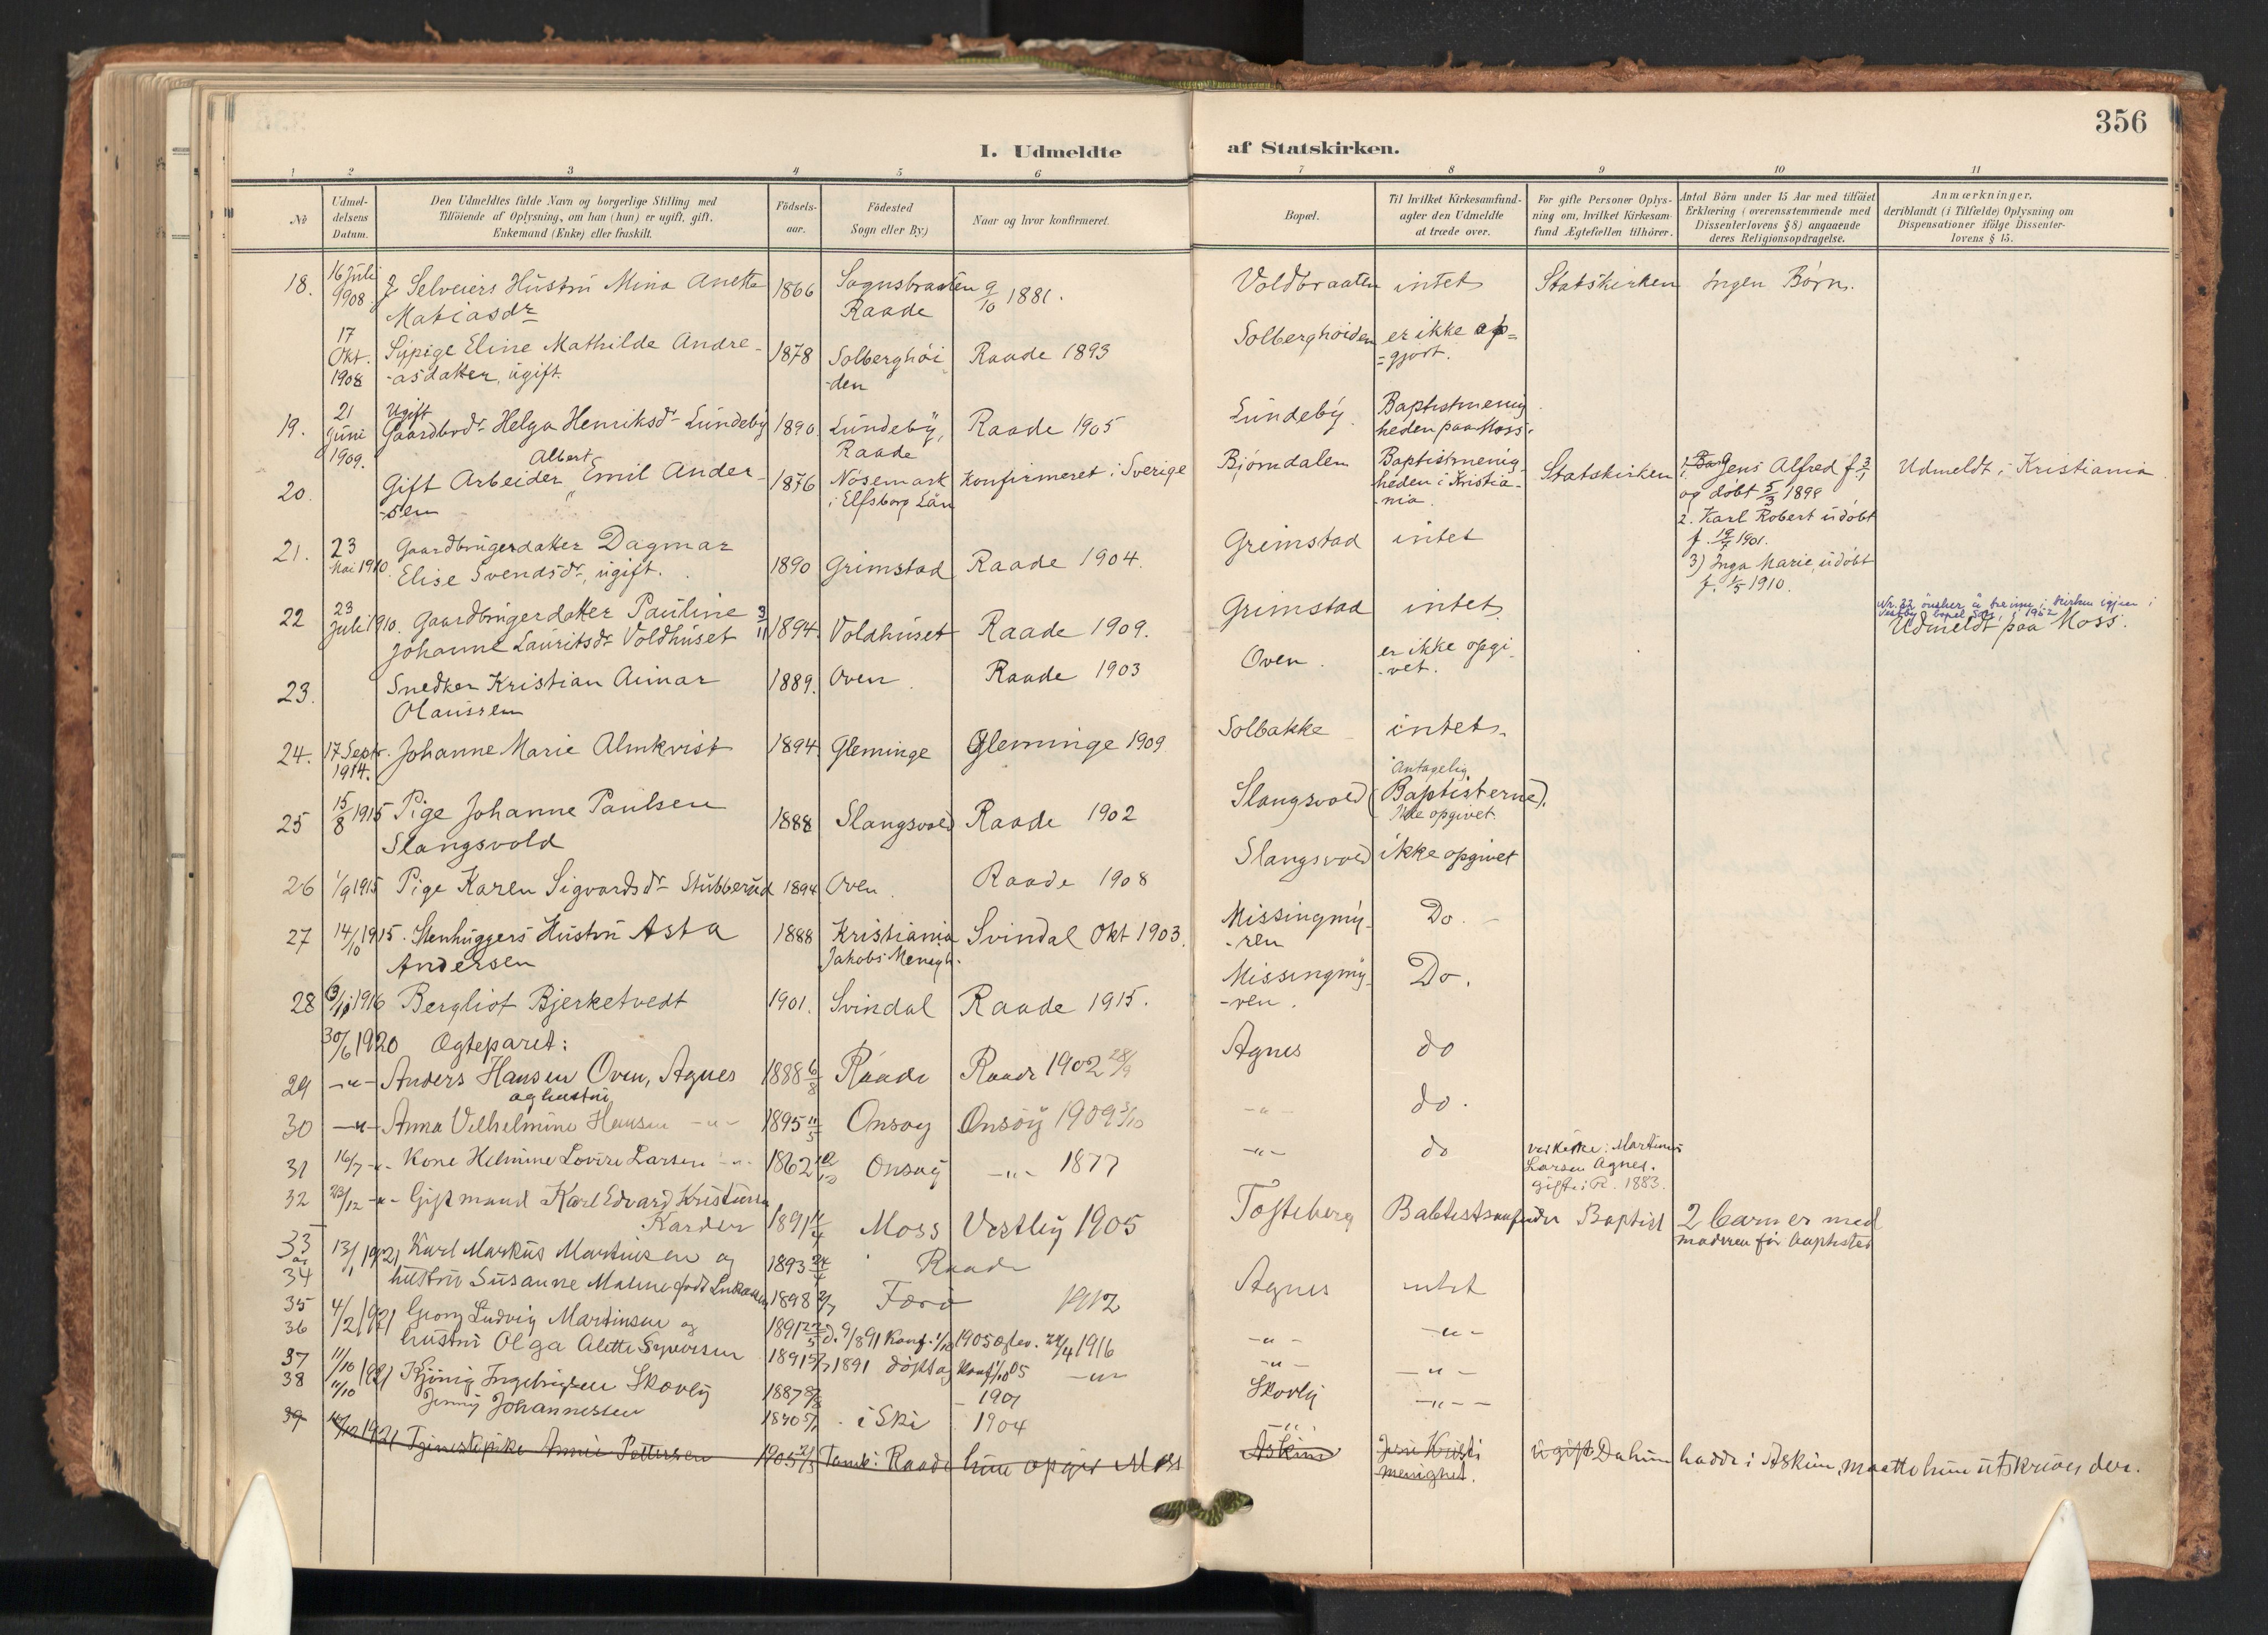 356
I. Udmeldte af Statskirken.
1 2 3 4 5 6 7 8 9 10 11
No
Udmel-
delsens
Datum.
Den Udmeldtes fulde Navn og borgerlige Stilling med
Tilföiende af Oplysning, om han (hun) er ugift, gift,
Enkemand (Enke) eller fraskilt.
Födsels-
aar.
Födested
Sogn eller By.)
Naar og hvor konfirmeret.
Bopæl.
Til hvilket Kirkesamfund
agter den Udmeldte
at træde over.
For gifte Personer Oplys-
ning om, hvilket Kirkesam-
fund Ægtefællen tilhörer.
Antal Börn under 15 Aar med tilföiet
Erklæring (overensstemmende med
Dissenterlovens § 8) angaaende
deres Religionsopdragelse.
Anmærkninger,
deriblandt (i Tilfælde) Oplysning om
Dispensationer ifölge Dissenter-
lovens § 15.
18. 16 Juli 1908 Selveiers Hustru Mina Anette 1866 Sognsbraaten 9/10 1881. Voldbraaten intet Statskirken Ingen Börn.
Matiasdr Raade
17 Okt. 1908 Sypige Eline Mathilde Andre- 1878 Solberghöi Raade 1893 Solberghöiden er ikke op=
-asdatter, ugift. -den =gjort.
19. 21 Juni 1909. Ugift
Gaardbrdr Helga Henriksdr Lundeby 1890 Lundeby, Raade 1905 Lundeby. Baptistmenig
Raade heden paa Moss.
20. Albert
Gift Arbeider Emil Ander- 1876 Nösemark Konfirmeret i Sverige Björndalen Baptistmenig- Statskirken Jens Alfred f. 3/1 Udmeldt i Kristiania
-sen i Elfsborg Län heden i Kristia- og döbt 5/3 1899
-nia. 2. Karl Robert udöbt
f. 19/7 1901.
3) Inga Marie, udöbt
f. 1/5 1910.
21. 23 Mai 1910. Gaardbrugerdatter Dagmar
Elise Svendsdr, ugift. 1890 Grimstad Raade 1904. Grimstad intet
22 23 Juli 1910. Gaardbrugerdatter Pauline 3/11 1894. Voldhuset Raade 1909. Grimstad intet
Johanne Lauritsdr Voldhuset
Nr. 22 önsker å tre inn i kirken igjen i
Vestby
1962
Udmeldt paa Moss.
23. Snedker Kristian Aimar 1889. Oven Raade 1903 Oven. er ikke opgi-
Olaussen -vet.
24. 17 Septr. 1914. Johanne Marie Almkvist 1894 Gleminge Gleminge 1909 Solbakke intet.
25 15/8 1915 Pige Johanne Paulsen 1888 Slangsvold Raade 1902 Slangsvold (Antagelig
Slangsvold Baptisterne).
Ikke opgivet.
26 1/9 1915 Pige Karen Sigvardsdr Stubberud 1894 Oven. Raade 1908 Slangsvold ikke opgivet
27 14/10 1915. Stenhuggers Hustru Asta 1888 Kristiania Svindal Okt 1903. Missingmy- Do.
Andersen Jakobs Menigh. -ren
28 1916 Bergliot Bjerketvedt 1901. Svindal Raade 1915. Missingmy- Do.
-ren.
30/6 1920 Ægteparet:
29 -"- Anders Hansen Oven, Agnes 1888 6/8 Raade Raade 1902 28/9 Agnes do
og hustru
30 -"- Anna Vilhelmine Hansen -"- 1895 11/5 Onsøy Onsöy 1909 3/10 -"- do.
31 16/7 -"- Kone Helmine Lovise Larsen -"- 1862 Onsøy -"- 1877 -"- do Martinus
Larsen Agnes.
gifte i R. 1883.
32 23/12 -"- Gift mand Karl Edvard Kristiansen
Karder 1891 Moss Vestby 1905 Tofteberg Baptist 2 barn er med
moderen för baptister
33 og 13/1 1921 Karl Markus Martinsen og 1893 Raade
34 hustru Susanne Maline född 1898 1912 Agnes intet
35 4/2 1921 Georg Ludvig Martinsen og 1891 d. 9/8 91 Konf. 1/10 1905 24/4 1916 -"- -"-
36 hustru Olga Alette Syversen 1891 1891 döpt og Konf 1/10 05 -"- -"- -"-
37 11/10 1921 Ingebrigtsen Skovly 1887 1901 Skovly -"-
38 11/10 Jenny Johannessen i Ski 1904 -"-
39 1921 Tjenestepike Annie Pettersen 1905 Tomb i Raade hun opgir Moss Askim Jesu Kristi ugift Da hun hadde i Askim, maatte hun utskrives der.
menighet.